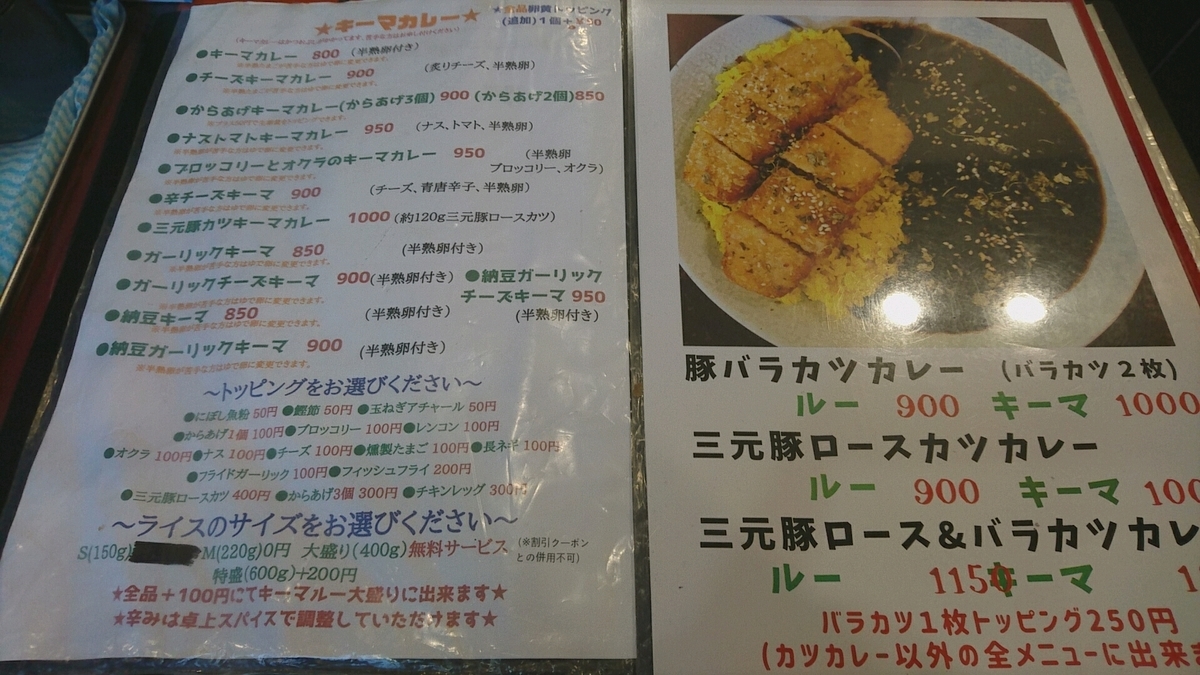 ★キーマカレー★
★全品卵黄トッピング
(追加)1個+
●キーマカレー 800 (半熟卵付き)
●チーズキーマカレー 900 (炙りチーズ、半熟卵)
※半熟卵が苦手な方はゆで卵に変更できます。
●からあげキーマカレー(からあげ3個) 900 (からあげ2個)850
●ナストマトキーマカレー 950 (ナス、トマト、半熟卵)
※半熟卵が苦手な方はゆで卵に変更できます。
●ブロッコリーとオクラのキーマカレー 950 (半熟卵
ブロッコリー、オクラ)
※半熟卵が苦手な方はゆで卵に変更できます。
●辛チーズキーマ 900 (チーズ、青唐辛子、半熟卵)
※半熟卵が苦手な方はゆで卵に変更できます。
●三元豚カツキーマカレー 1000 (約120g三元豚ロースカツ)
●ガーリックキーマ 850 (半熟卵付き)
※半熟卵が苦手な方はゆで卵に変更できます。
●ガーリックチーズキーマ 900 (半熟卵付き)
※半熟卵が苦手な方はゆで卵に変更できます。
●納豆ガーリック
チーズキーマ 950
(半熟卵付き)
●納豆キーマ 850 (半熟卵付き)
※半熟卵が苦手な方はゆで卵に変更できます。
●納豆ガーリックキーマ 900 (半熟卵付き)
※半熟卵が苦手な方はゆで卵に変更できます。
~トッピングをお選びください~
●にぼし魚粉 50円 ●鰹節 50円 ●玉ねぎアチャール 50円
●からあげ1個 100円 ●ブロッコリー 100円 ●レンコン 100円
●オクラ 100円 ●ナス 100円 ●チーズ 100円 ●燻製たまご 100円 ●長ネギ 100円
●フライドガーリック 100円 ●フィッシュフライ 200円
●三元豚ロースカツ 400円 ●からあげ3個 300円 ●チキンレッグ 300円
~ライスのサイズをお選びください~
S(150g) M(220g)0円 大盛り(400g)無料サービス (※割引クーポン
との併用不可)
特盛(600g)+200円
★全品+100円にてキーマルー大盛りに出来ます★
★辛みは卓上スパイスで調整していただけます★
豚バラカツカレー (バラカツ2枚)
ルー 900 キーマ 1000
三元豚ロースカツカレー
ルー 900 キーマ 100
三元豚ロース&バラカツカレ
ルー 1150 キーマ 1
バラカツ1枚トッピング250円
(カツカレー以外の全メニューに出来ま